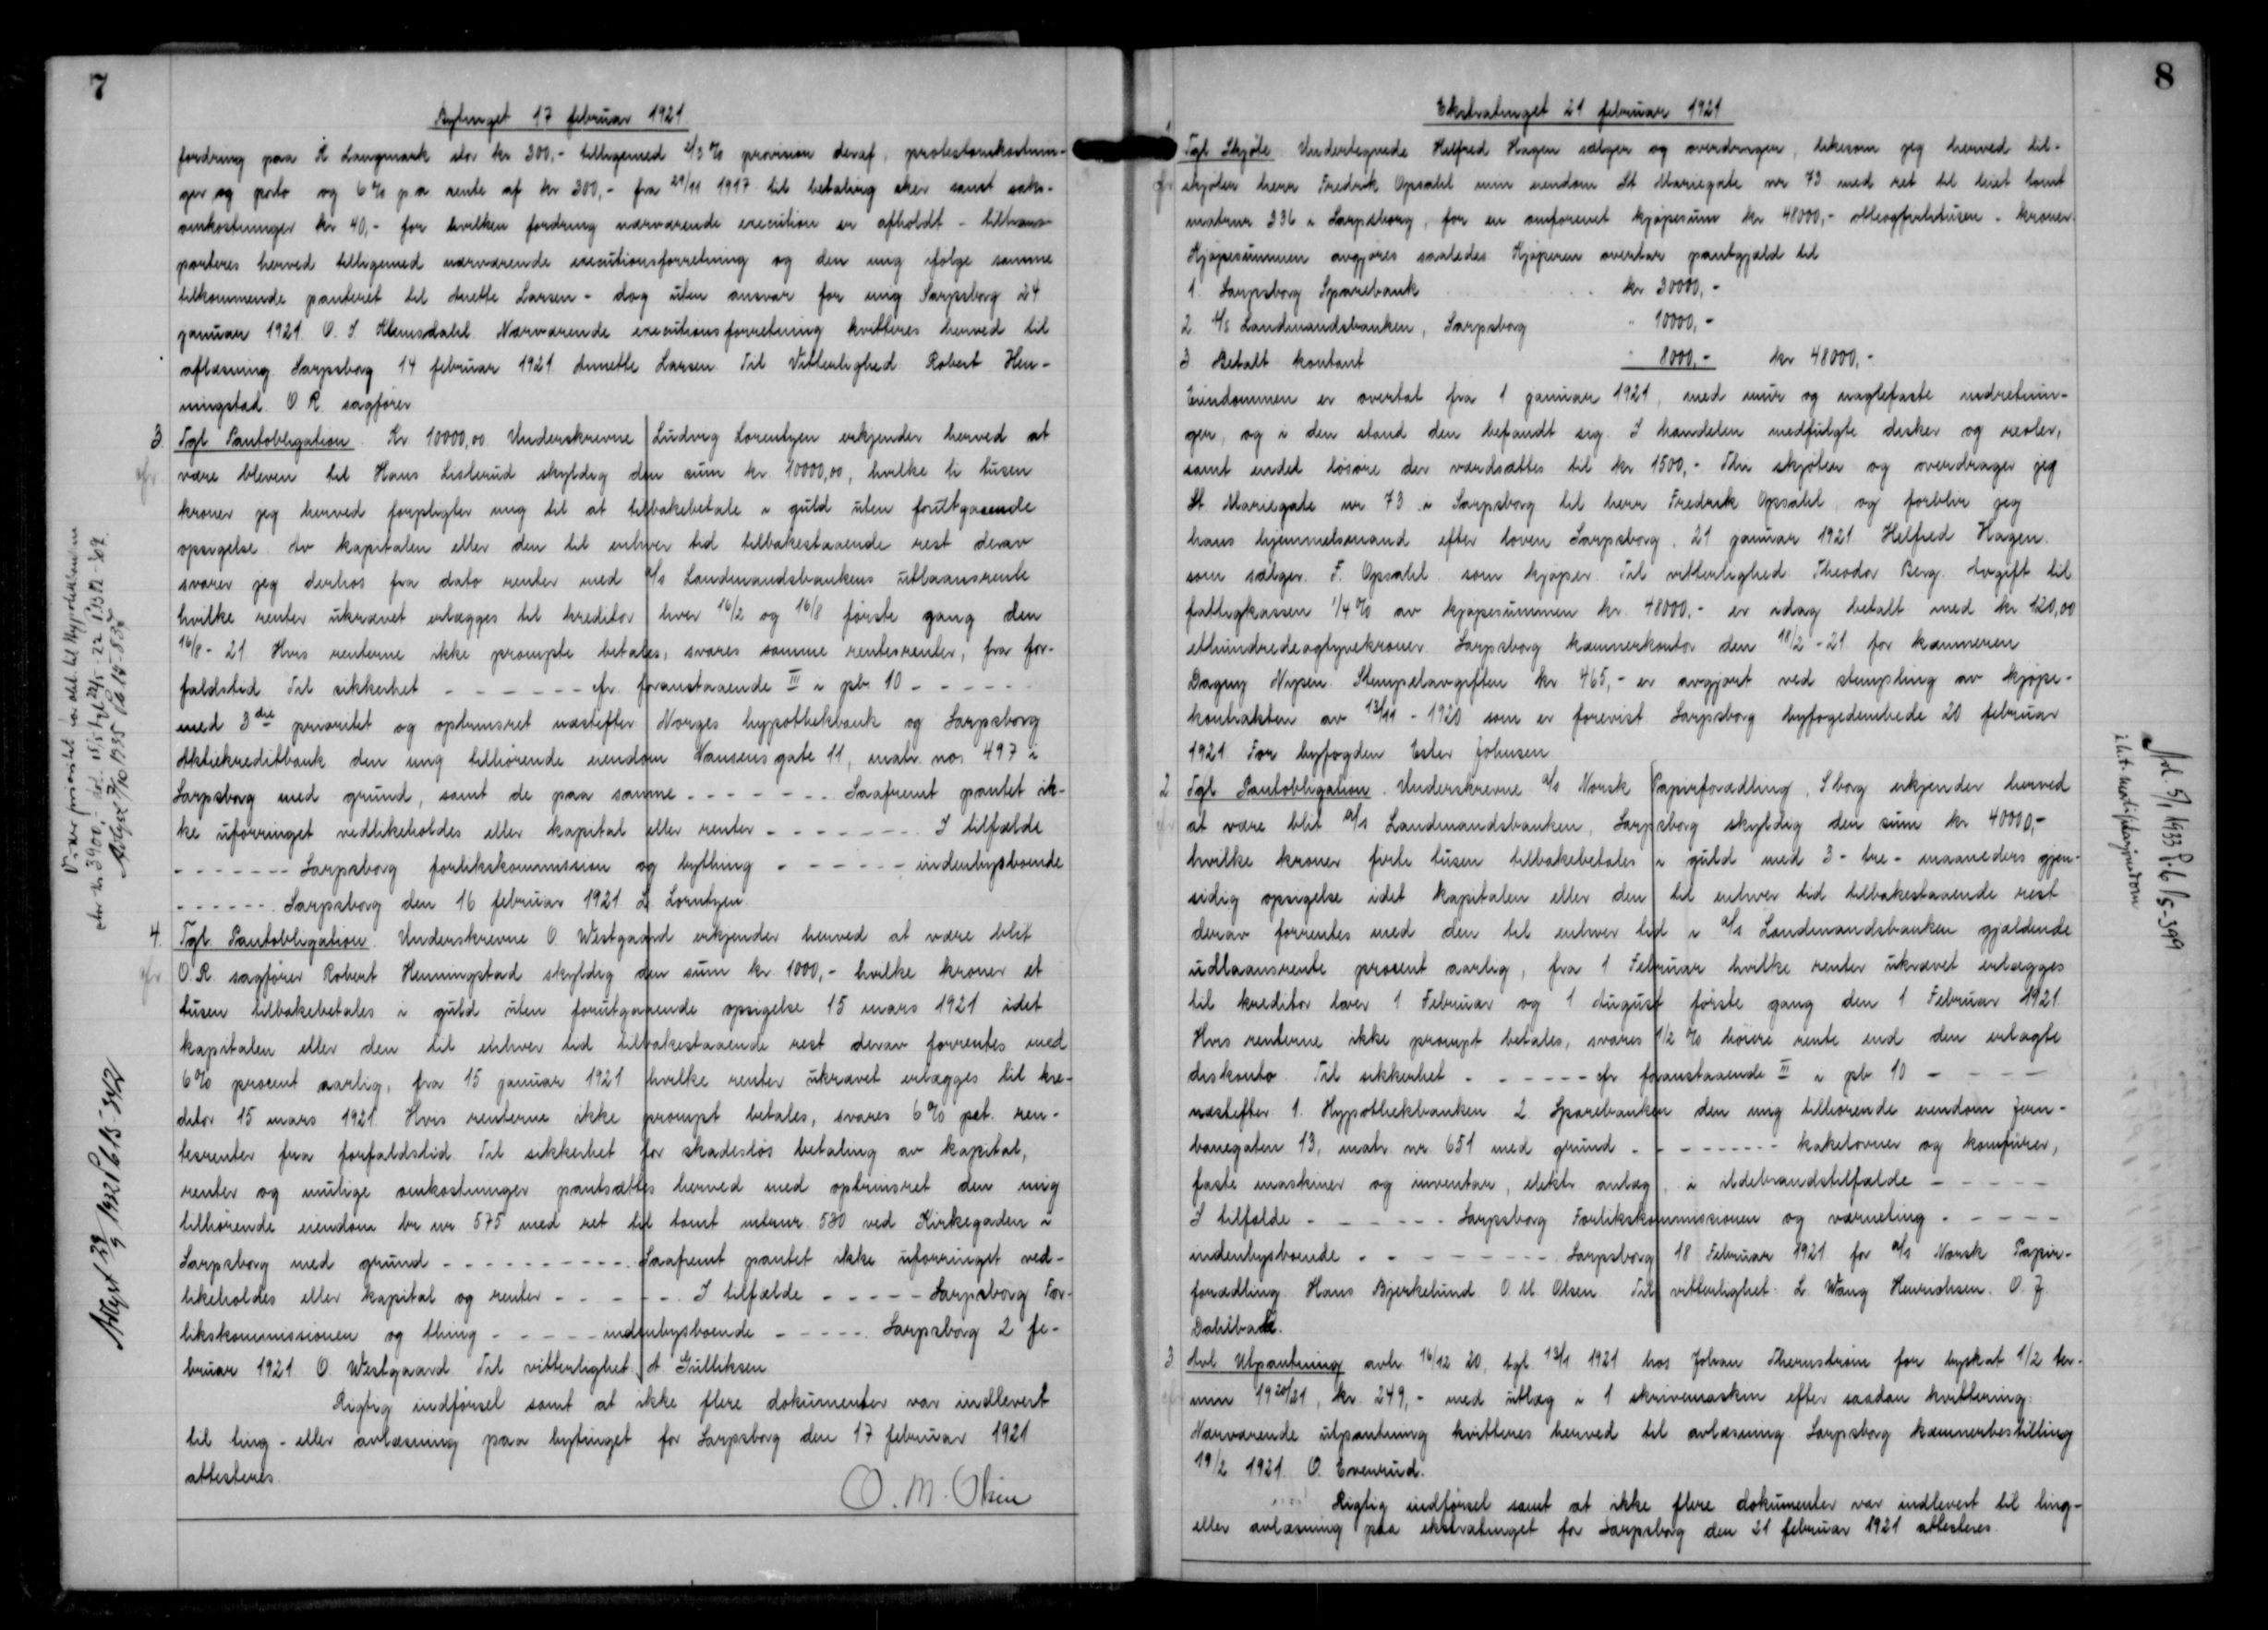 7
Bytinget 17 februar 1921
fordring paa K Langmark stor kr 300,- tilligemed 2/3 % provision deraf, protestomkostnin-
ger og porto og 6% p.a rente af kr 300,- fra 29/11 1917 til betaling sker samt saks-
omkostninger kr 40,- for hvilken fordring nærværende execution er afholdt - tiltrans-
porteres herved tilligemed nærværende executionsforretning og den mig ifølge samme
tilkommende panteret til Anette Larsen - dog uten ansvar for mig Sarpsborg 24
januar 1921 O. J Klemsdahl Nærværende executionsforretning kvitteres herved til
aflæsning Sarpsborg 14 februar 1921 Annette Larsen Til Vitterlighed Robert Hen-
ningstad O. R. sagfører
3. Tgl Pantobligation. Kr 10000,00 Underskrevne Ludvig Lorentzen erkjender herved at
være bleven til Hans Listerud skyldig den sum kr. 10000,00, hvilke ti tusen
kroner jeg herved forpligter mig til at tilbakebetale i guld uten forutgaaende
opsigelse Av kapitalen eller den til enhver tid tilbakestaaende rest derav
svarer jeg derhos fra dato renter med A/s Landmandsbankens utlaansrente
hvilke renter ukrævet erlægges til kreditor hver 16/2 og 16/8 første gang den
16/8 - 21 Hvis renterne ikke prompte betales, svares samme rentesrenter, fra for-
faldstid Til sikkerhet - - - - - - cfr. foranstaaende III i pb. 10 - - - - -
med 3die prioritet og optrinsret næstefter Norges hypothekbank og Sarpsborg
Aktiekreditbank den mig tilhørende eiendom Nansens gate 11, matr. no. 497 i
Sarpsborg med grund, samt de paa samme - - - - - - - Saafremt pantet ik-
ke uforringet vedlikeholdes eller kapital eller renter - - - - - - - I tilfælde
- - - - - - - Sarpsborg forlikskommission og bything - - - - - - indenbysboende
- - - - - - Sarpsborg den 16 februar 1921 L Lorntzen.
4. Tgl. Pantobligation. Underskrevne O. Westgaard erkjender herved at være blit
O. R. sagfører Robert Henningstad skyldig den sum kr. 1000,- hvilke kroner et
tusen tilbakebetales i guld uten forutgaaende opsigelse 15 mars 1921 idet
kapitalen eller den til enhver tid tilbakestaaende rest derav forrentes med
6% procent aarlig, fra 15 januar 1921 hvilke renter ukrævet erlægges til kre-
ditor 15 mars 1921 Hvis renterne ikke prompt betales, svares 6% pct. ren-
tesrenter fra forfaldstid Til sikkerhet for skadesløs betaling av kapital,
renter og mulige omkostninger pantsættes herved med optrinsret den mig
tilhørende eiendom br. nr. 575 med ret til tomt mtrnr. 530 ved Kirkegaden i
Sarpsborg med grund - - - - - - - - - - Saafremt pantet ikke uforringet ved-
likeholdes eller kapital og renter - - - - - I tilfælde - - - - - Sarpsborg For-
likskommissionen og thing - - - - - indenbysboende - - - - - Sarpsborg 2 fe-
bruar 1921 O. Westgaard Til vitterlighet: A. Gulliksen
Rigtig indførsel samt at ikke flere dokumenter var indlevert
til ting - eller avlæsning paa bytinget for Sarpsborg den 17 februar 1921
attesteres.
O. M. Olsen
Viker prioritet for obl. til Hypothekbanken
stor kr 3900,-
Avlyst 29/9 1932 P. b 15-342
8
Ekstratinget 21 februar 1921
1 Tgl Skjøte. Undertegnede Hilfred Hagen sælger og overdrager, likesom jeg herved til-
cfr skjøter herr Fredrik Opsahl min eiendom St Mariegate nr 73 med ret til leiet tomt
matrnr 236 i Sarpsborg, for en omforenet kjøpesum kr 48000,- otteogfirtitusen - kroner.
Kjøpesummen avgjøres saaledes: Kjøperen overtar pantgjæld til
1. Sarpsborg Sparebank kr 30000,-
2. A/s Landmandsbanken, Sarpsborg " 10000,-
3 Betalt kontant " 8000,- kr 48000,-
Eiendommen er overtat fra 1 januar 1921, med mur og naglefaste indretnin-
ger, og i den stand den befandt sig. I handelen medfulgte disker og reoler,
samt endel løsøre der værdsættes til kr 1500,- Thi skjøter og overdrager jeg
St. Mariegate nr 73 i Sarpsborg til herr Fredrik Opsahl, og forblir jeg
hans hjemmelsmand efter loven Sarpsborg, 21 januar 1921 Hilfred Hagen.
som sælger. F. Opsahl som kjøper. Til vitterlighed: Theodor Berg. Avgift til
fattigkassen 1/4 % av kjøpesummen kr. 48000,- er idag betalt med kr. 120,00
etthundredeogtyvekroner. Sarpsborg kæmnerkontor den 18/2 - 21 for kæmneren
Dagny Nysen. Stempelavgiften kr 465,- er avgjort ved stempling av kjøpe-
kontrakten av 13/11 - 1920 som er forevist Sarpsborg byfogedembede 20 februar
1921 For byfogden Ester Johnsen
2 Tgl Pantobligation. Underskrevne A/s Norsk Papirforædling, S.borg erkjender herved
at være blit A/s Landmandsbanken, Sarpsborg skyldig den sum kr 40000,-
hvilke kroner førti tusen tilbakebetales i guld med 3 - tre - maaneders gjen-
sidig opsigelse idet kapitalen eller den til enhver tid tilbakestaaende rest
derav forrentes med den til enhver tid i A/s Landmandsbanken gjældende
udlaansrente procent aarlig, fra 1 Februar hvilke renter ukrævet erlægges
til kreditor hver 1 Februar og 1 August første gang den 1 Februar 1921.
Hvis renterne ikke prompt betales, svares 1/2 % høiere rente end den erlagte
diskonto Til sikkerhet - - - - - - cfr foranstaaende III i pb. 10 - - - -
næstefter 1. Hypothekbanken 2. Sparebanken den mig tilhørende eiendom Jern-
banegaten 13, matr. nr. 651 med grund - - - - - - - - kakelovner og komfurer,
faste maskiner og inventar, elektr. anlæg, i ildebrandstilfælde - - - - -
I tilfælde - - - - - - Sarpsborg Forlikskommissionen og værneting - - - - -
indenbysboende - - - - - - - - Sarpsborg 18 Februar 1921 for A/s Norsk Papir-
forædling. Hans Bjerkelund O. M. Olsen Til vitterlighet: L. Wang Henrichsen. O. J
Dahlbak.
3. Avl. Utpantning avh. 16/12 20, tgl. 13/1 1921 hos Johan Thernstrøm for byskat 1/2 ter-
min 1920/21, kr. 249,- med utlæg i 1 skrivemaskin efter saadan kvittering:
Nærværende utpantning kvitteres herved til avlæsning. Sarpsborg kæmnerbestilling
19/2 1921. O. Evenrud.
Rigtig indførsel samt at ikke flere dokumenter var indlevert til ting-
eller avlæsning paa ekstratinget for Sarpsborg den 21 februar 1921 attesteres.